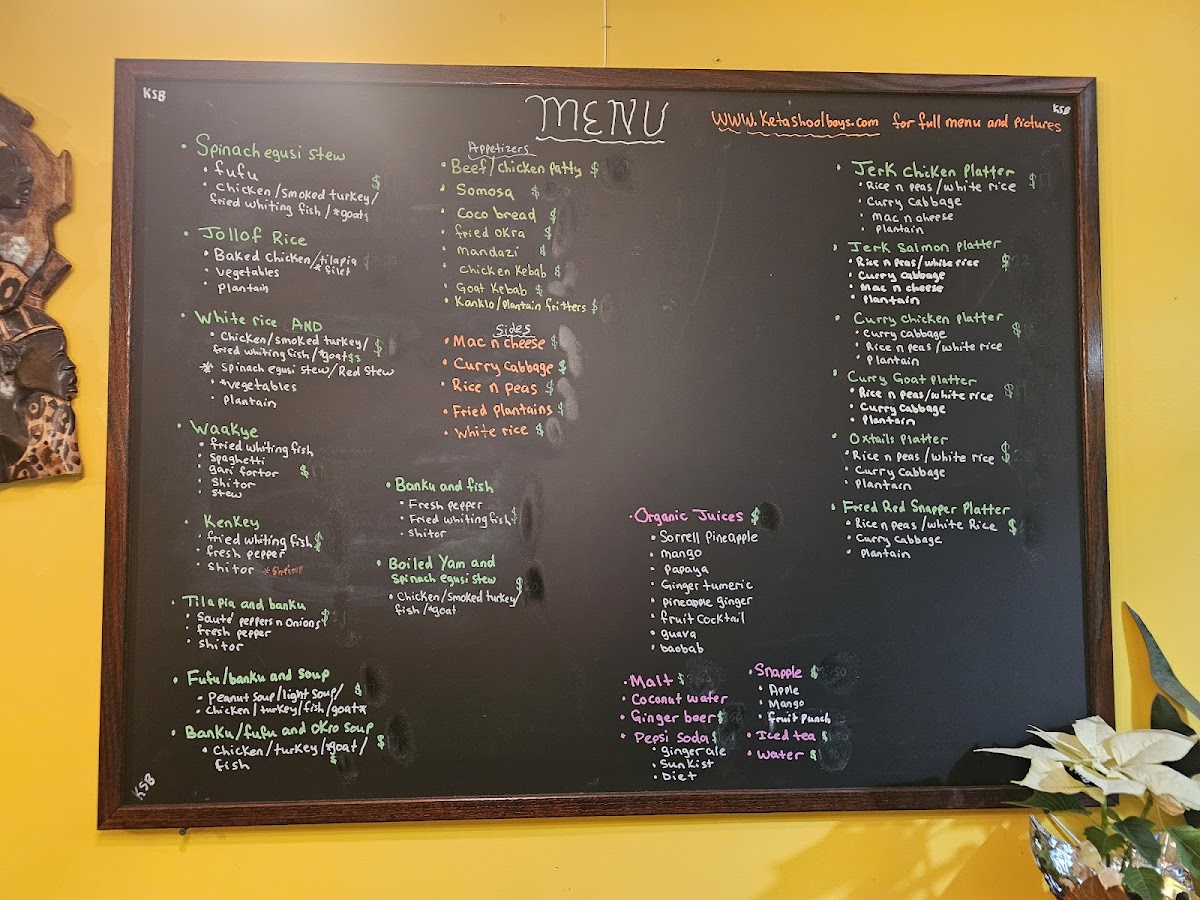 KSB
MENU
KSB
WWW.Ketashoolboys.com for full menu and pictures
• Spinach egusi stew
• fufu
• Chicken/smoked turkey/ $
fried whiting fish/*goat$
• Jollof Rice
• Baked Chicken/tilapia
* filet
• vegetables
• plantain
• White rice AND
• Chicken/smoked turkey/ $
fried whiting fish/*goat$3
* Spinach egusi stew/Red Stew
• *vegetables
• plantain
• Waakye
• fried whiting fish
• Spaghetti
• gari fortor $
• Shitor
• stew
• Kenkey
• fried whiting fish $
• fresh pepper
• Shitor *Shrimp
• Tilapia and banku
• Sauté peppers n onions $
• fresh pepper
• shitor
• Fufu/banku and soup
• Peanut soup/light soup/ $
• chicken/turkey/fish/goat*
• Banku/fufu and okro soup
• Chicken/turkey/*goat/ $
fish $
KSB
Appetizers
• Beef/chicken patty $
• Somosa $
• Coco bread $
• fried okra $
• mandazi $
• Chicken Kebab $
• Goat Kebab $
• Kanklo/plantain fritters $
Sides
• Mac n cheese $
• Curry cabbage $
• Rice n peas $
• Fried Plantains $
• White rice $
• Banku and fish
• Fresh pepper
• Fried whiting fish $
• shitor
• Boiled Yam and
Spinach egusi stew $
• Chicken/smoked turkey/
fish/*goat
• Organic Juices $
• Sorrell Pineapple
• mango
• Papaya
• Ginger tumeric
• pineapple ginger
• fruit cocktail
• guava
• baobab
• Malt $
• Coconut water
• Ginger beer $
• Pepsi Soda $
• gingerale
• Sunkist
• Diet
• Snapple $
• Apple
• Mango
• Fruit punch
• Iced tea $
• Water $
• Jerk Chicken Platter
• Rice n peas/white rice $
• Curry Cabbage
• Mac n cheese
• plantain
• Jerk Salmon Platter
• Rice n peas/white rice $
• Curry cabbage
• Mac n cheese
• Plantain
• Curry chicken Platter
• Curry cabbage $
• Rice n peas/white rice
• Plantain
• Curry Goat platter
• Rice n peas/white rice $
• Curry Cabbage
• Plantain
• Oxtails Platter
• Rice n peas/white rice $
• Curry Cabbage
• Plantain
• Fried Red Snapper Platter
• Rice n peas/white Rice $
• Curry Cabbage
• Plantain